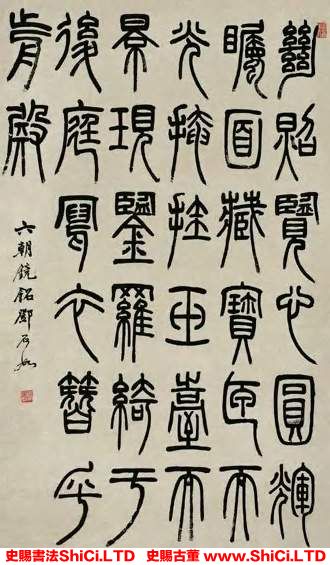 絕照覽心圓輝
矚面藏寶匣而
光掩挂玉臺而
景現鑒羅綺于
後庭寫衣簪乎
前殿
六朝鏡銘鄧石如
史賜書法ShiCi.LTD 史賜古董 www.ShiCi.LTD